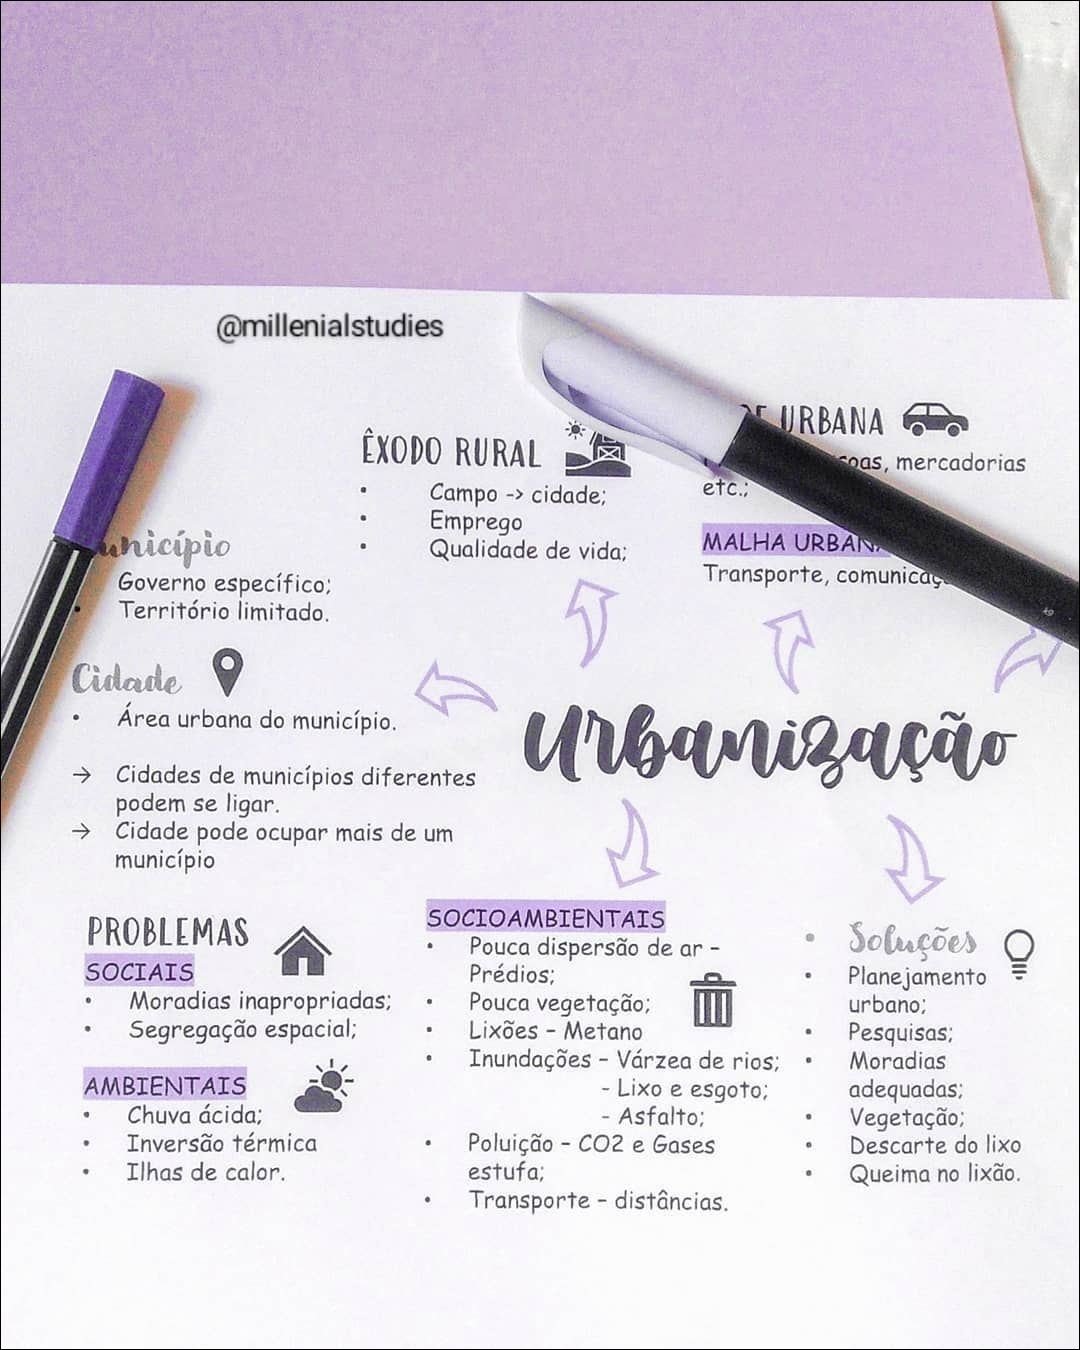 @millenialstudies
ÊXODO RURAL
• Campo -> cidade;
• Emprego
• Qualidade de vida;
URBANA
mercadorias
etc.;
MALHA URBANA
Transporte,
Município
Governo específico;
• Território limitado.
Cidade
• Área urbana do município.
→ Cidades de municípios diferentes
podem se ligar.
→ Cidade pode ocupar mais de um
município
Urbanização
PROBLEMAS
SOCIAIS
• Moradias inapropriadas;
• Segregação espacial;
AMBIENTAIS
• Chuva ácida;
• Inversão térmica
• Ilhas de calor.
SOCIOAMBIENTAIS
• Pouca dispersão de ar –
Prédios;
• Pouca vegetação;
• Lixões – Metano
• Inundações – Várzea de rios;
- Lixo e esgoto;
- Asfalto;
• Poluição – CO2 e Gases
estufa;
• Transporte – distâncias.
• Soluções
• Planejamento
urbano;
• Pesquisas;
• Moradias
adequadas;
• Vegetação;
• Descarte do lixo
• Queima no lixão.